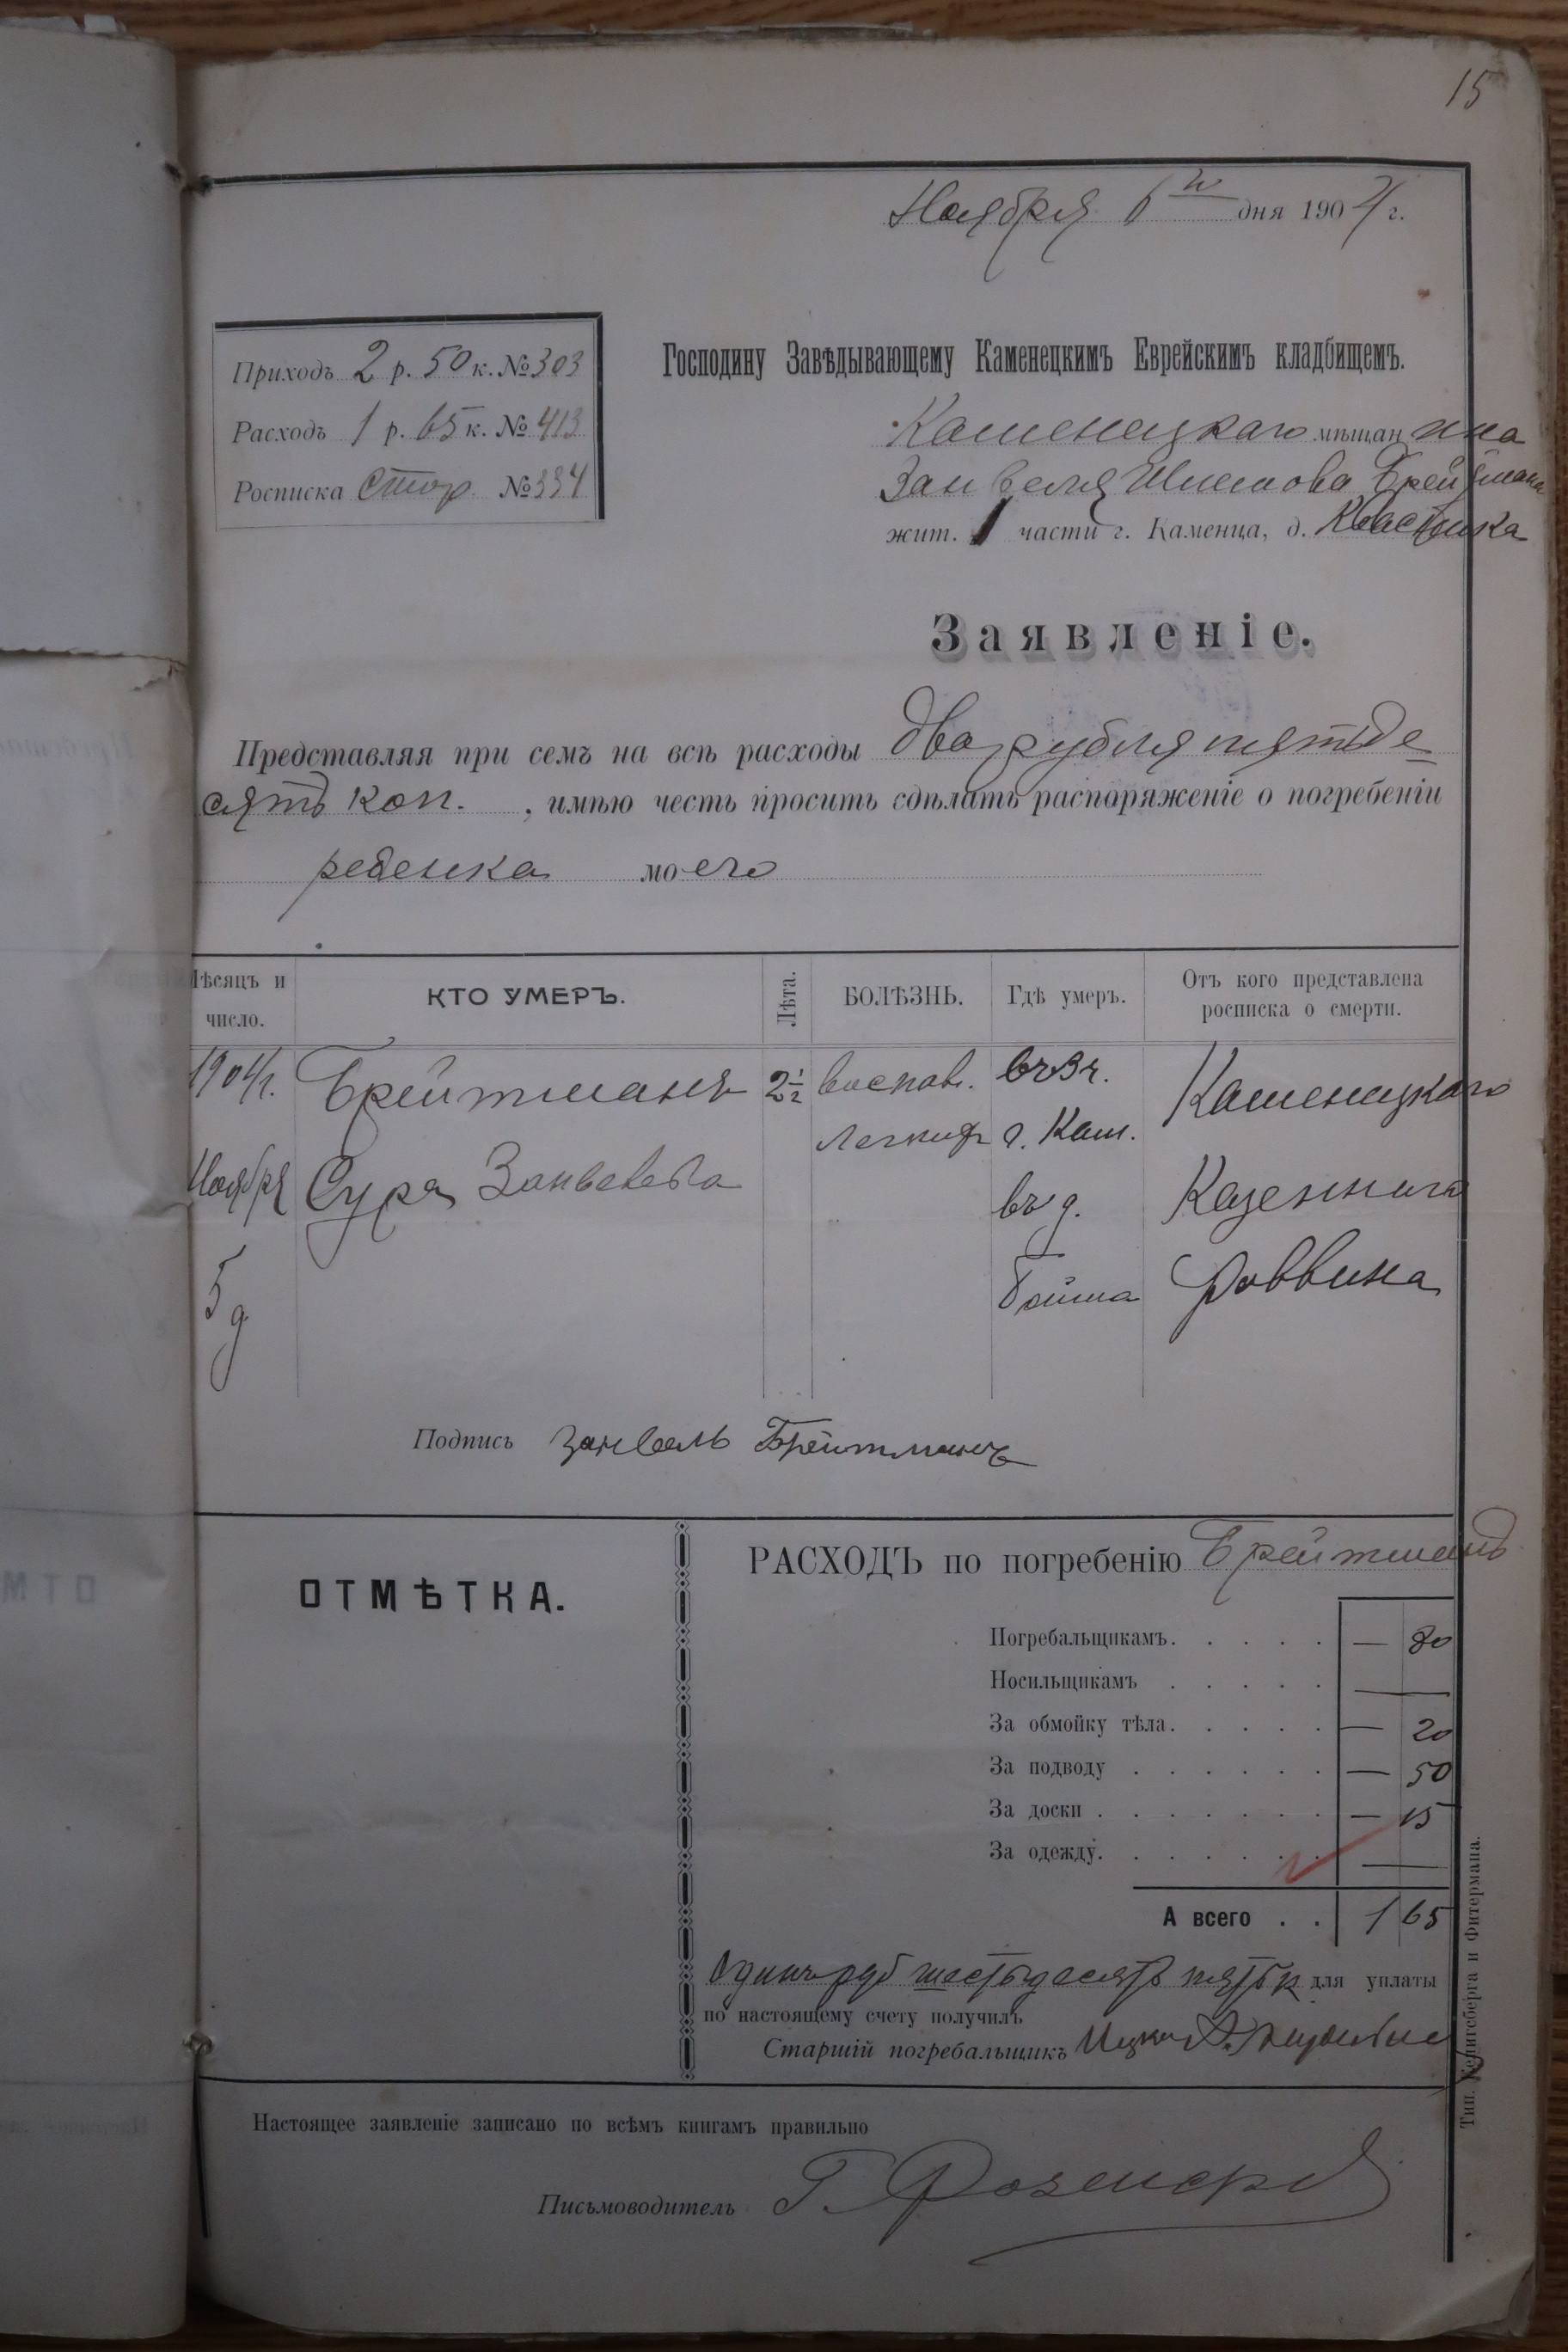 15
Ноября 6го дня 1904 г.
Приходъ 2 р. 50 к. № 303
Расходъ 1 р. 65 к. № 413
Росписка стор. № 334
Господину Завѣдывающему Каменецкимъ Еврейскимъ кладбищемъ.
Каменецкаго мѣщанина
Занвеля Шлемова Брейтмана
жит. 1 части г. Каменца, д. Квасника
Заявленіе.
Представляя при семъ на всѣ расходы два рубля пятьде
сятъ коп. , имѣю честь просить сдѣлать распоряженіе о погребеніи
ребенка моего
Мѣсяцъ и число.
КТО УМЕРЪ.
Лѣта.
БОЛѢЗНЬ.
Гдѣ умеръ.
Отъ кого представлена росписка о смерти.
1904 г. Брейтманъ 2½ воспал. Каменецкаго
легких г. Кам.
Ноября Сура Занвелева въ д. Казеннаго
5 д Раввина
Подпись Занвель Брейтманъ
ОТМѢТКА.
РАСХОДЪ по погребенію Брейтманъ
Погребальщикамъ. . . . . — 80
Носильщикамъ . . . . . —
За обмойку тѣла. . . . . — 20
За подводу . . . . . . — 50
За доски . . . . . . . — 15
За одежду. . . . . . . —
А всего . . 1 65
Одинъ руб шестьдесятъ пять к для уплаты
по настоящему счету получилъ
Старшій погребальщикъ Ицко
Настоящее заявленіе записано по всѣмъ книгамъ правильно
Письмоводитель Г.
Тип. и Фитермана.